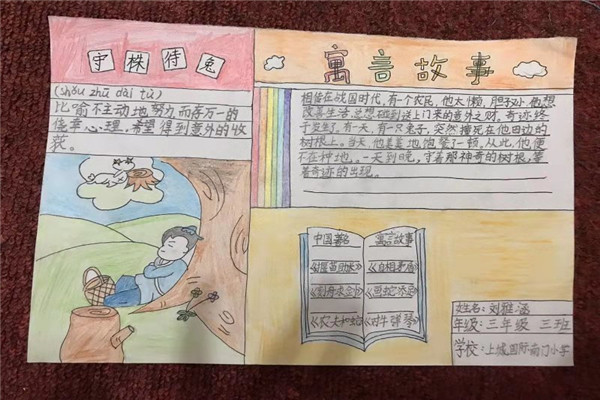 守株待兔
(shǒu zhū dài tù)
比喻不主动地努力,而存万一的
侥幸心理,希望得到意外的收
获。
寓言故事
相传在战国时代,有一个农民,他太懒,胆子小,他想
改善生活,总想碰到送上门来的意外之财。奇迹终
于发生了,有一天,有一只兔子,突然撞死在他田边的
树根上。当天,他美美地饱餐了一顿,从此,他便
不在种地。一天到晚,守着那神奇的树根,等
着奇迹的出现。
中国著名
《揠苗助长》
《刻舟求剑》
《农夫和蛇》
寓言故事
《自相矛盾》
《画蛇添足》
《对牛弹琴》
姓名:刘
年级:三年级 三班
学校:上城国际南门小学